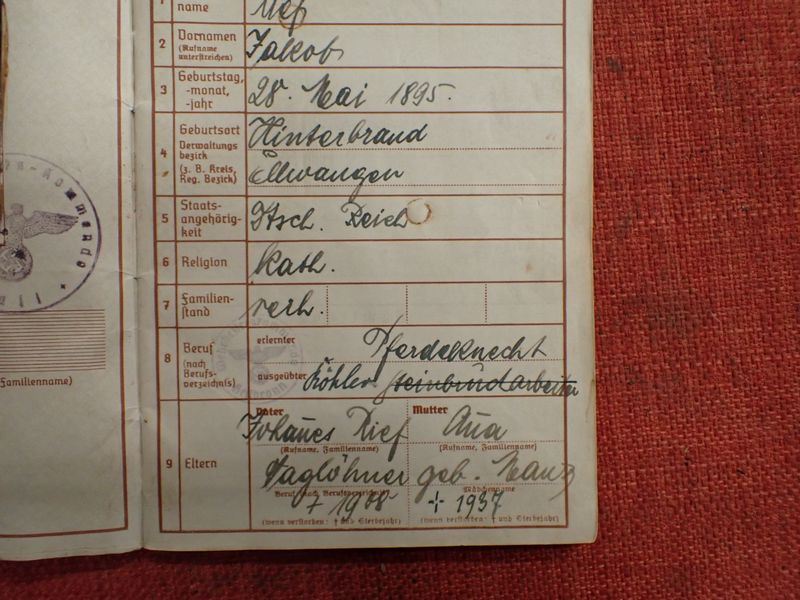 1 name
2 Vornamen Jakob
(Rufname
unterstreichen)
3 Geburtstag, 28. Mai 1895.
-monat,
-jahr
4 Geburtsort Hinterbrand
Verwaltungs
bezirk Ellwangen
(z. B. Kreis,
Reg. Bezirk)
5 Staats- Dtsch. Reich
angehörig-
keit
6 Religion kath.
7 Familien- verh.
stand
8 Beruf erlernter Pferdeknecht
(nach
Berufs- ausgeübter Köhler Steinbrucharbeiter
verzeichn(s)
Vater Mutter
Johannes Rief Anna
(Rufname, Familienname) (Rufname, Familienname)
9 Eltern Taglöhner geb. Manz
Beruf (nach Berufsverzeichnis) Mädchenname
† 1908 † 1937
(wenn verstorben: † und Sterbejahr) (wenn verstorben: † und Sterbejahr)
Familienname)